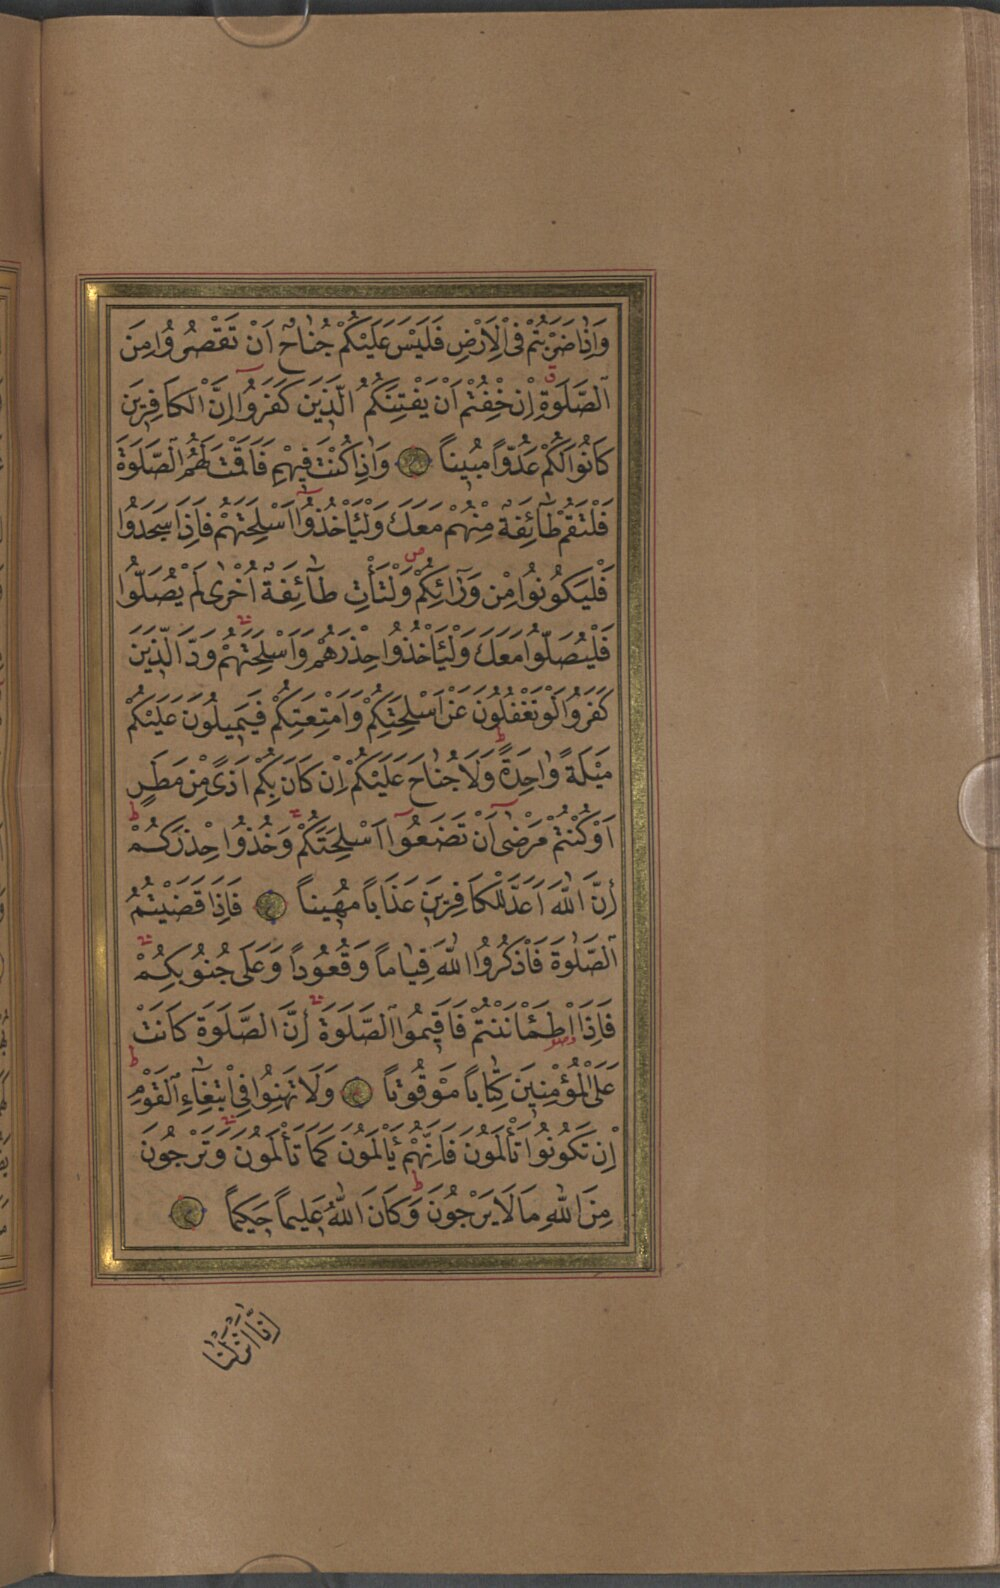 وَاِذَا ضَرَبْتُمْ فِى الْاَرْضِ فَلَيْسَ عَلَيْكُمْ جُنَاحٌ اَنْ تَقْصُرُوا مِنَ
الصَّلٰوةِ اِنْ خِفْتُمْ اَنْ يَفْتِنَكُمُ الَّذِينَ كَفَرُوا اِنَّ الْكَافِرِينَ
كَانُوا لَكُمْ عَدُوًّا مُبِيناً وَاِذَا كُنْتَ فِيهِمْ فَاَقَمْتَ لَهُمُ الصَّلٰوةَ
فَلْتَقُمْ طَآئِفَةٌ مِنْهُمْ مَعَكَ وَلْيَأْخُذُوا اَسْلِحَتَهُمْ فَاِذَا سَجَدُوا
فَلْيَكُونُوا مِنْ وَرَآئِكُمْ وَلْتَأْتِ طَآئِفَةٌ اُخْرٰى لَمْ يُصَلُّوا
فَلْيُصَلُّوا مَعَكَ وَلْيَأْخُذُوا حِذْرَهُمْ وَاَسْلِحَتَهُمْ وَدَّ الَّذِينَ
كَفَرُوا لَوْ تَغْفُلُونَ عَنْ اَسْلِحَتِكُمْ وَاَمْتِعَتِكُمْ فَيَمِيلُونَ عَلَيْكُمْ
مَيْلَةً وَاحِدَةً وَلَا جُنَاحَ عَلَيْكُمْ اِنْ كَانَ بِكُمْ اَذًى مِنْ مَطَرٍ
اَوْ كُنْتُمْ مَرْضٰى اَنْ تَضَعُوا اَسْلِحَتَكُمْ وَخُذُوا حِذْرَكُمْ
اِنَّ اللّٰهَ اَعَدَّ لِلْكَافِرِينَ عَذَاباً مُهِيناً فَاِذَا قَضَيْتُمُ
الصَّلٰوةَ فَاذْكُرُوا اللّٰهَ قِيَاماً وَقُعُوداً وَعَلٰى جُنُوبِكُمْ
فَاِذَا اطْمَأْنَنْتُمْ فَاَقِيمُوا الصَّلٰوةَ اِنَّ الصَّلٰوةَ كَانَتْ
عَلَى الْمُؤْمِنِينَ كِتَاباً مَوْقُوتاً وَلَا تَهِنُوا فِى ابْتِغَآءِ الْقَوْمِ
اِنْ تَكُونُوا تَأْلَمُونَ فَاِنَّهُمْ يَأْلَمُونَ كَمَا تَأْلَمُونَ وَتَرْجُونَ
مِنَ اللّٰهِ مَا لَا يَرْجُونَ وَكَانَ اللّٰهُ عَلِيماً حَكِيماً
اِنَّا اَنْزَلْنَا